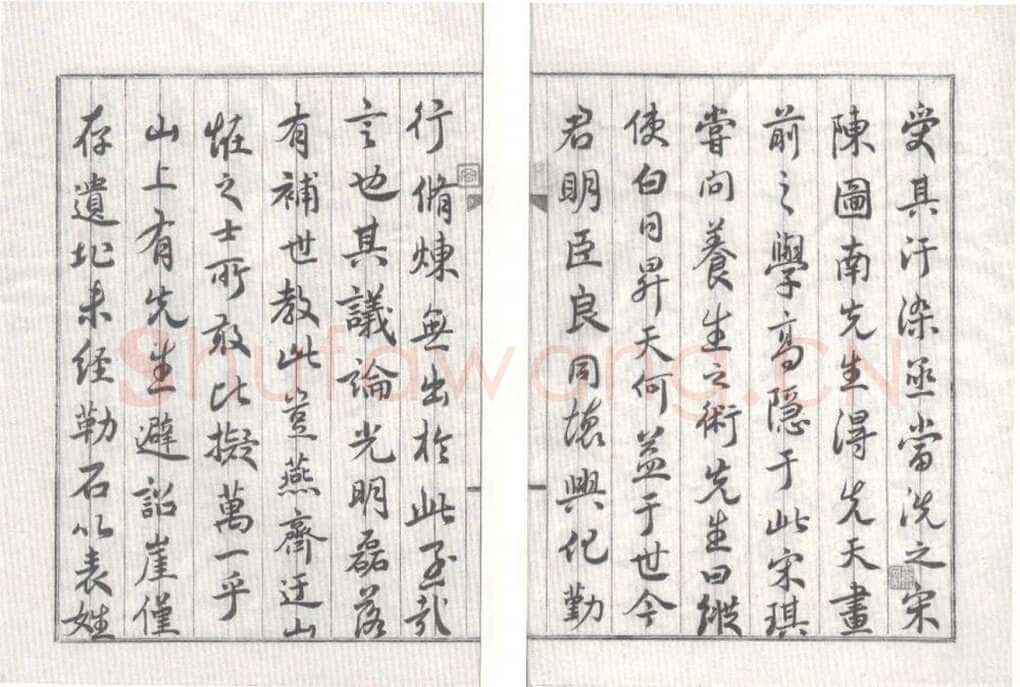 受其汙染亟當洗之宋
陳圖南先生得先天畫
前之學高隱于此宋琪
嘗問養生之術先生曰縱
使白日昇天何益于世今
君明臣良同德興化勤
行脩煉無出於此至哉
言也其議論光明磊落
有補世教此豈燕齊迂山
恠之士所敢比擬萬一乎
山上有先生避詔崖僅
存遺址未經勒石以表姓
Shufawang.CN